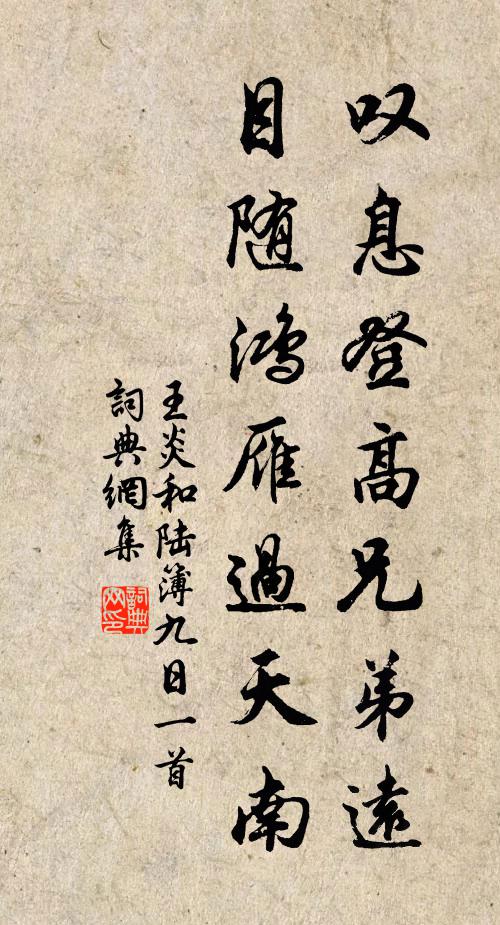 叹息登高兄弟遠
目随鴻雁過天南
王炎和陆簿九日一首
詞典網集
詞典网印